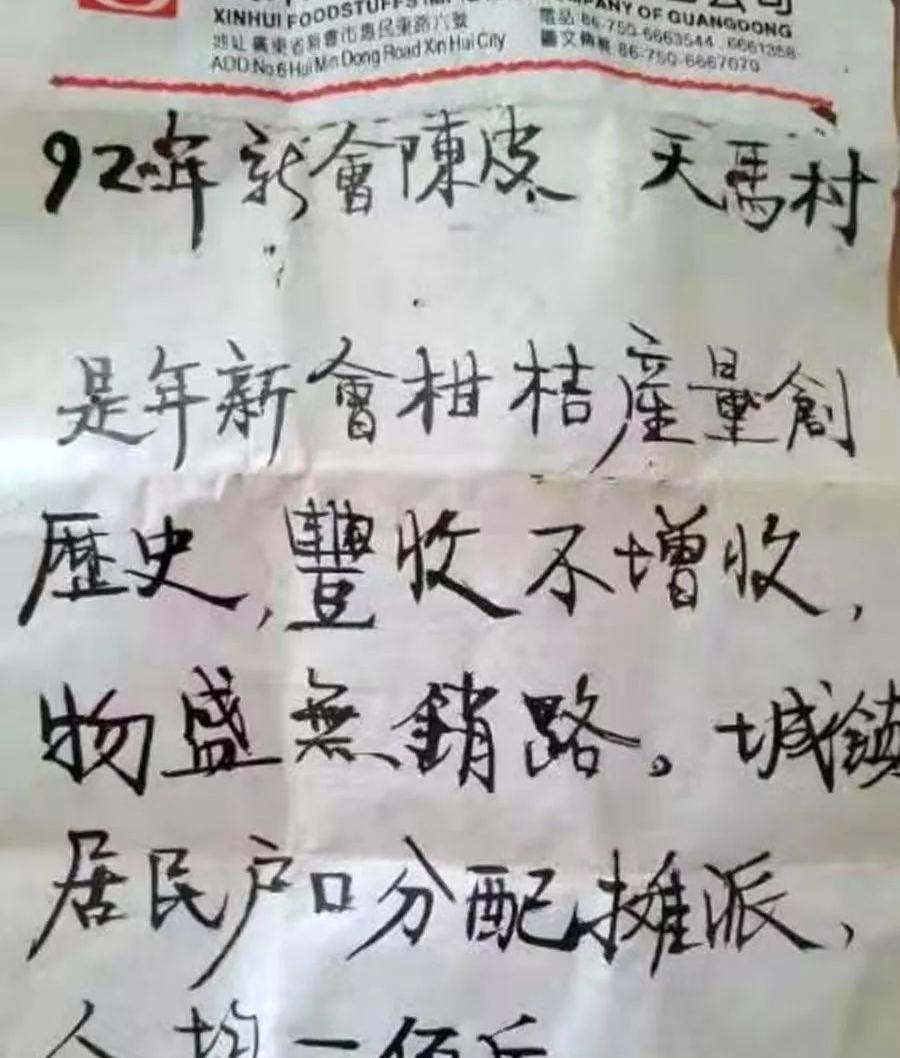 公司
XINHUI FOODSTUFFS COMPANY OF GUANGDONG
地址 廣東省新會市惠民東路六號 電話 86-750-6663544 6661358
ADD No.6 Hui Min Dong Road Xin Hui City 圖文傳真 86-750-6667070
92年新會陳皮 天馬村
是年新會柑桔產量創
歷史,豐收不增收,
物盛無銷路。城鎮
居民户口分配攤派,
人均一佰斤